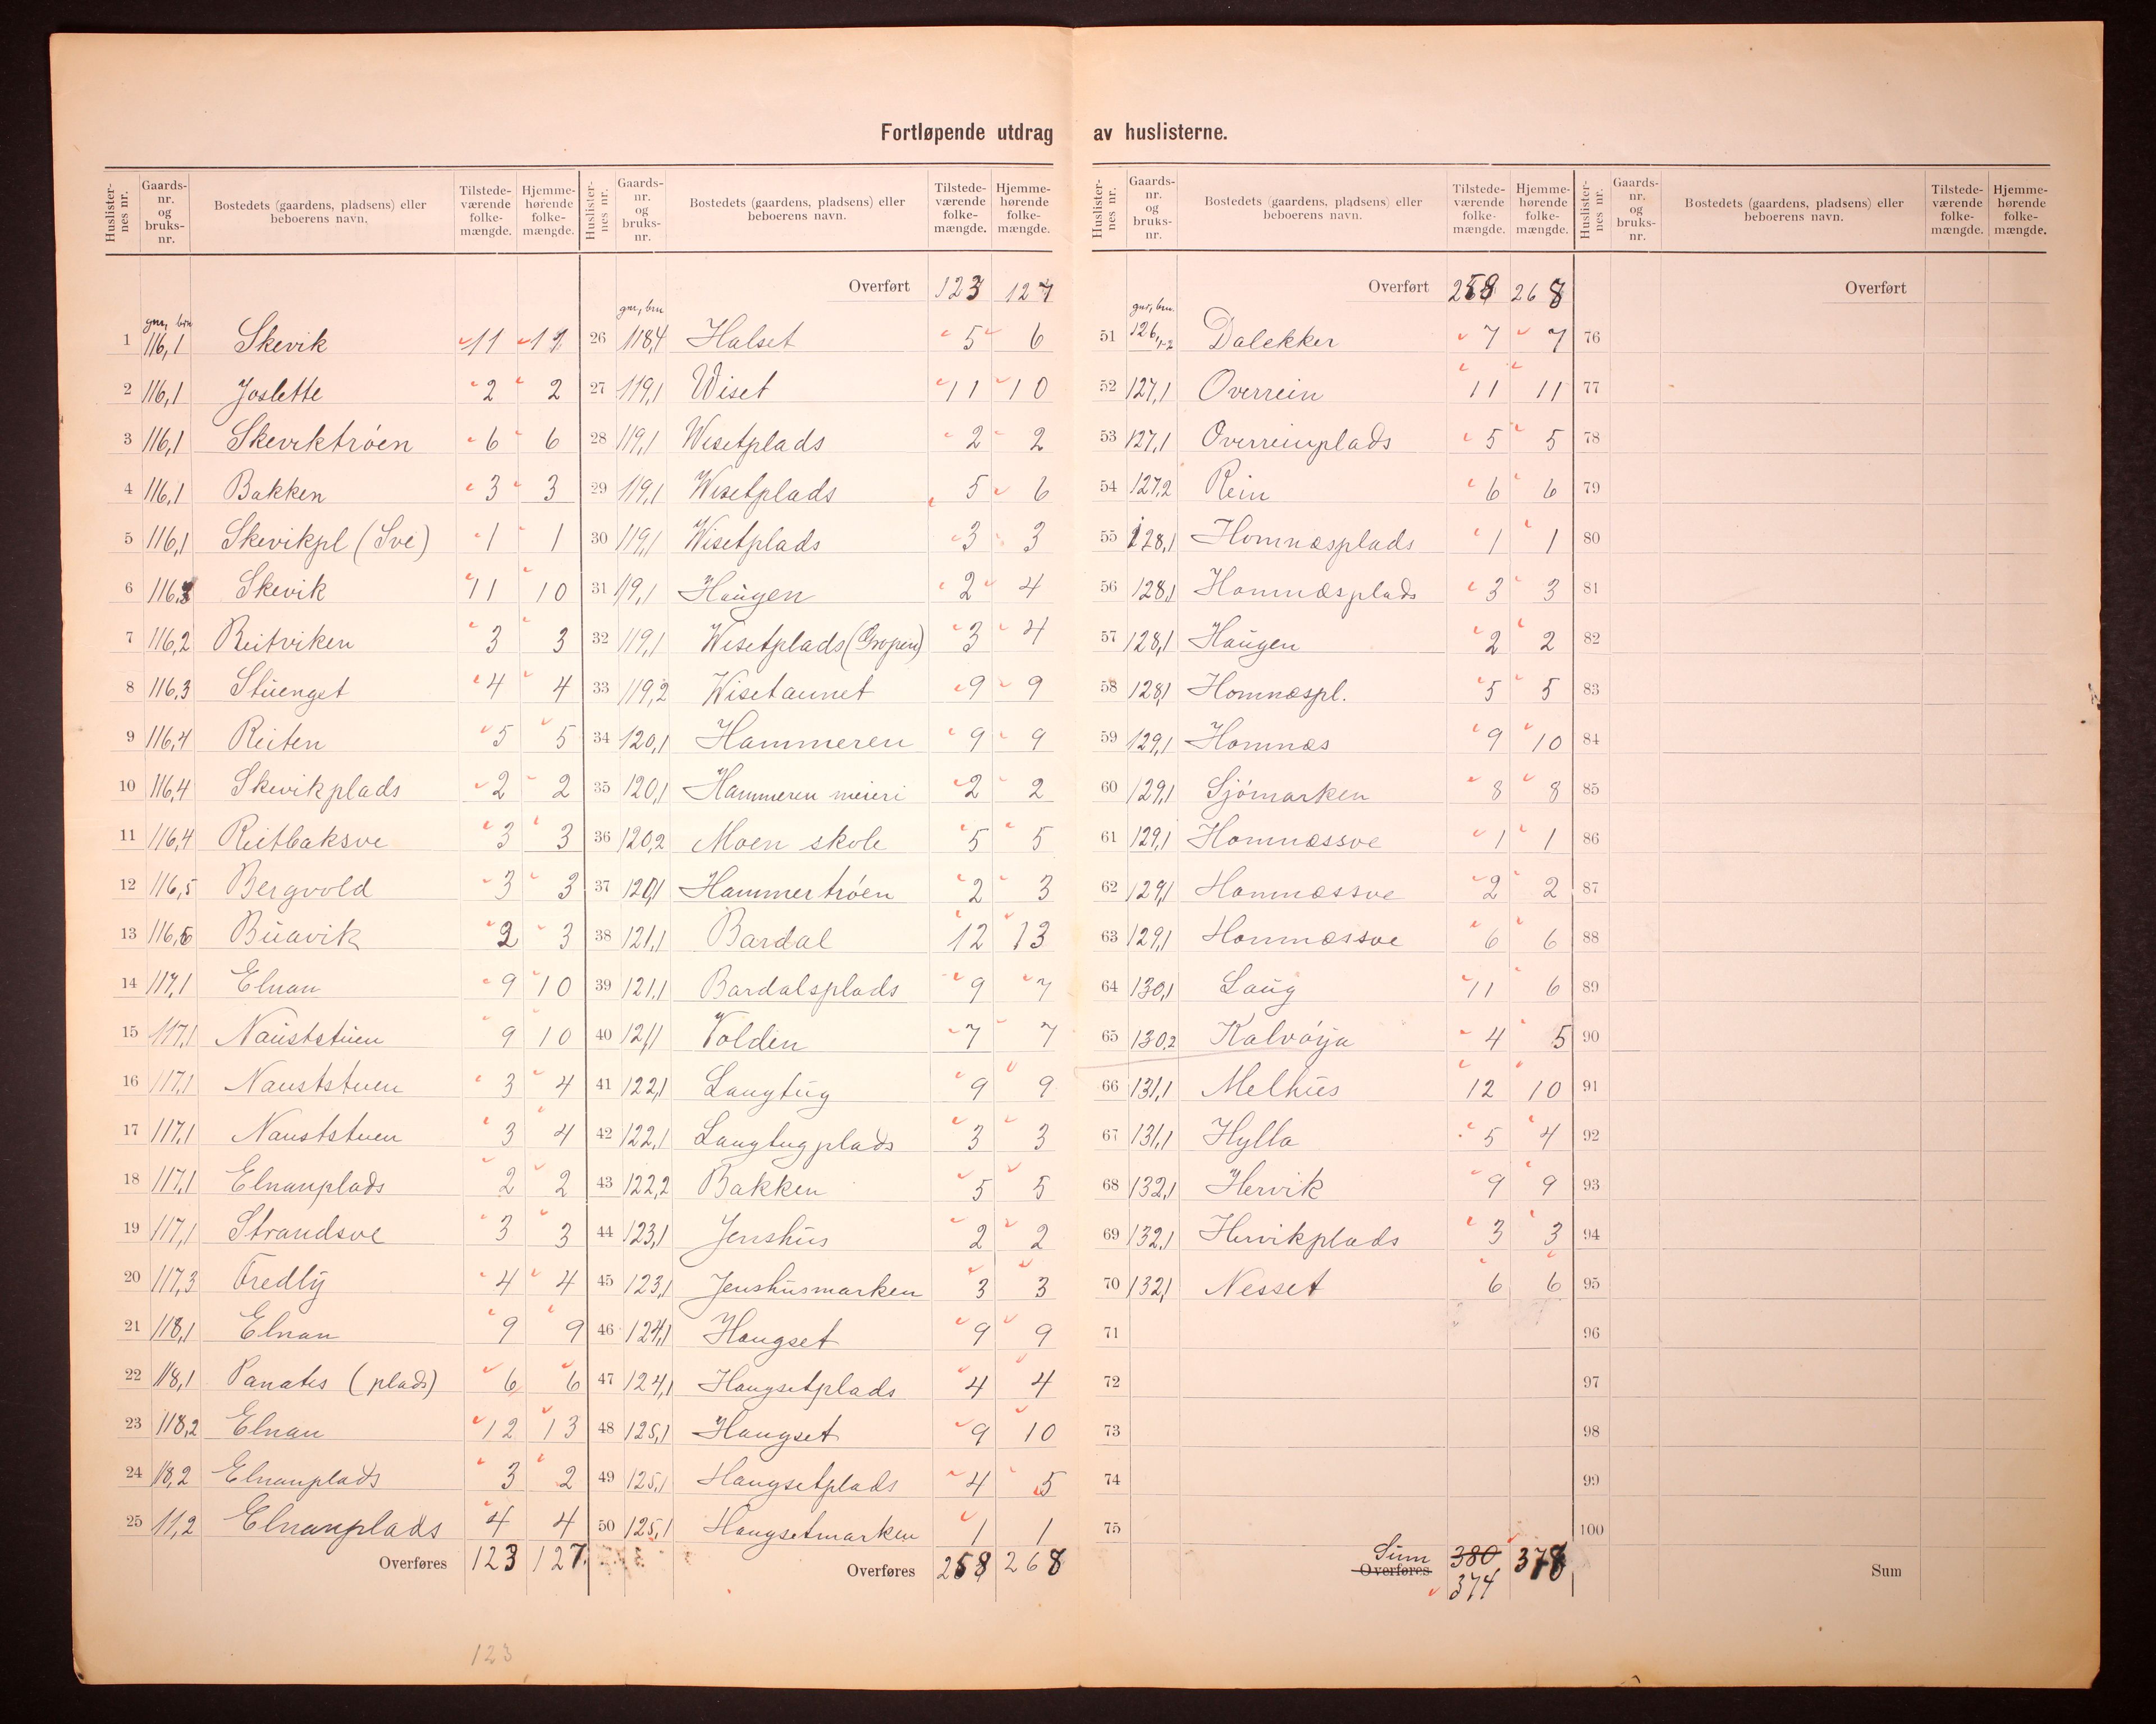 Fortløpende utdrag av huslisterne.
Huslisternes nr. Gaards-nr. og bruks-nr. Bostedets (gaardens, pladsens) eller beboerens navn. Tilstedeværende folkemængde. Hjemmehørende folkemængde.
gnr, brn
1 116,1 Skevik 11 12
2 116,1 Joslette 2 2
3 116,1 Skeviktrøen 6 6
4 116,1 Bakken 3 3
5 116,1 Skevikpl (Sve) 1 1
6 116,3 Skevik 11 10
7 116,2 Reitviken 3 3
8 116,3 Stuenget 4 4
9 116,4 Reiten 5 5
10 116,4 Skevikplads 2 2
11 116,4 Reitbaksve 3 3
12 116,5 Bergvold 3 3
13 116,6 Buavik 2 3
14 117,1 Elnan 9 10
15 117,1 Nauststuen 9 10
16 117,1 Nauststuen 3 4
17 117,1 Nauststuen 3 4
18 117,1 Elnanplads 2 2
19 117,1 Strandsve 3 3
20 117,3 Fredly 4 4
21 118,1 Elnan 9 9
22 118,1 Panates (plads) 6 6
23 118,2 Elnan 12 13
24 118,2 Elnanplads 3 2
25 11,2 Elnanplads 4 4
Overføres 123 127
Huslisternes nr. Gaards-nr. og bruks-nr. Bostedets (gaardens, pladsens) eller beboerens navn. Tilstedeværende folkemængde. Hjemmehørende folkemængde.
Overført 123 127
gnr, brn
26 118,4 Halset 5 6
27 119,1 Wiset 11 10
28 119,1 Wisetplads 2 2
29 119,1 Wisetplads 5 6
30 119,1 Wisetplads 3 3
31 119,1 Haugen 2 4
32 119,1 Wisetplads (Gropen) 3 4
33 119,2 Wisetaunet 9 9
34 120,1 Hammeren 9 9
35 120,1 Hammeren meieri 2 2
36 120,2 Moen skole 5 5
37 120,1 Hammertrøen 2 3
38 121,1 Bardal 12 13
39 121,1 Bardalsplads 9 7
40 121,1 Volden 7 7
41 122,1 Langtug 9 9
42 122,1 Langtugplads 3 3
43 122,2 Bakken 5 5
44 123,1 Jenshus 2 2
45 123,1 Jenshusmarken 3 3
46 124,1 Haugset 9 9
47 124,1 Haugsetplads 4 4
48 125,1 Haugset 9 10
49 125,1 Haugsetplads 4 5
50 125,1 Haugsetmarken 1 1
Overføres 258 268
Huslisternes nr. Gaards-nr. og bruks-nr. Bostedets (gaardens, pladsens) eller beboerens navn. Tilstedeværende folkemængde. Hjemmehørende folkemængde.
Overført 258 268
gnr, brn.
51 126,1-2 Dalekker 7 7
52 127,1 Overrein 11 11
53 127,1 Overreinplads 5 5
54 127,2 Rein 6 6
55 128,1 Homnæsplads 1 1
56 128,1 Homnæsplads 3 3
57 128,1 Haugen 2 2
58 128,1 Homnæspl. 5 5
59 129,1 Homnæs 9 10
60 129,1 Sjömarken 8 8
61 129,1 Homnæssve 1 1
62 129,1 Homnæssve 2 2
63 129,1 Homnæssve 6 6
64 130,1 Laug 11 6
65 130,2 Kalvøya 4 5
66 131,1 Melhus 12 10
67 131,1 Hylla 5 4
68 132,1 Hervik 9 9
69 132,1 Hervikplads 3 3
70 132,1 Nesset 6 6
71
72
73
74
75
Sum 380 378
Overføres 374
Huslisternes nr. Gaards-nr. og bruks-nr. Bostedets (gaardens, pladsens) eller beboerens navn. Tilstedeværende folkemængde. Hjemmehørende folkemængde.
Overført
76
77
78
79
80
81
82
83
84
85
86
87
88
89
90
91
92
93
94
95
96
97
98
99
100
Sum
123